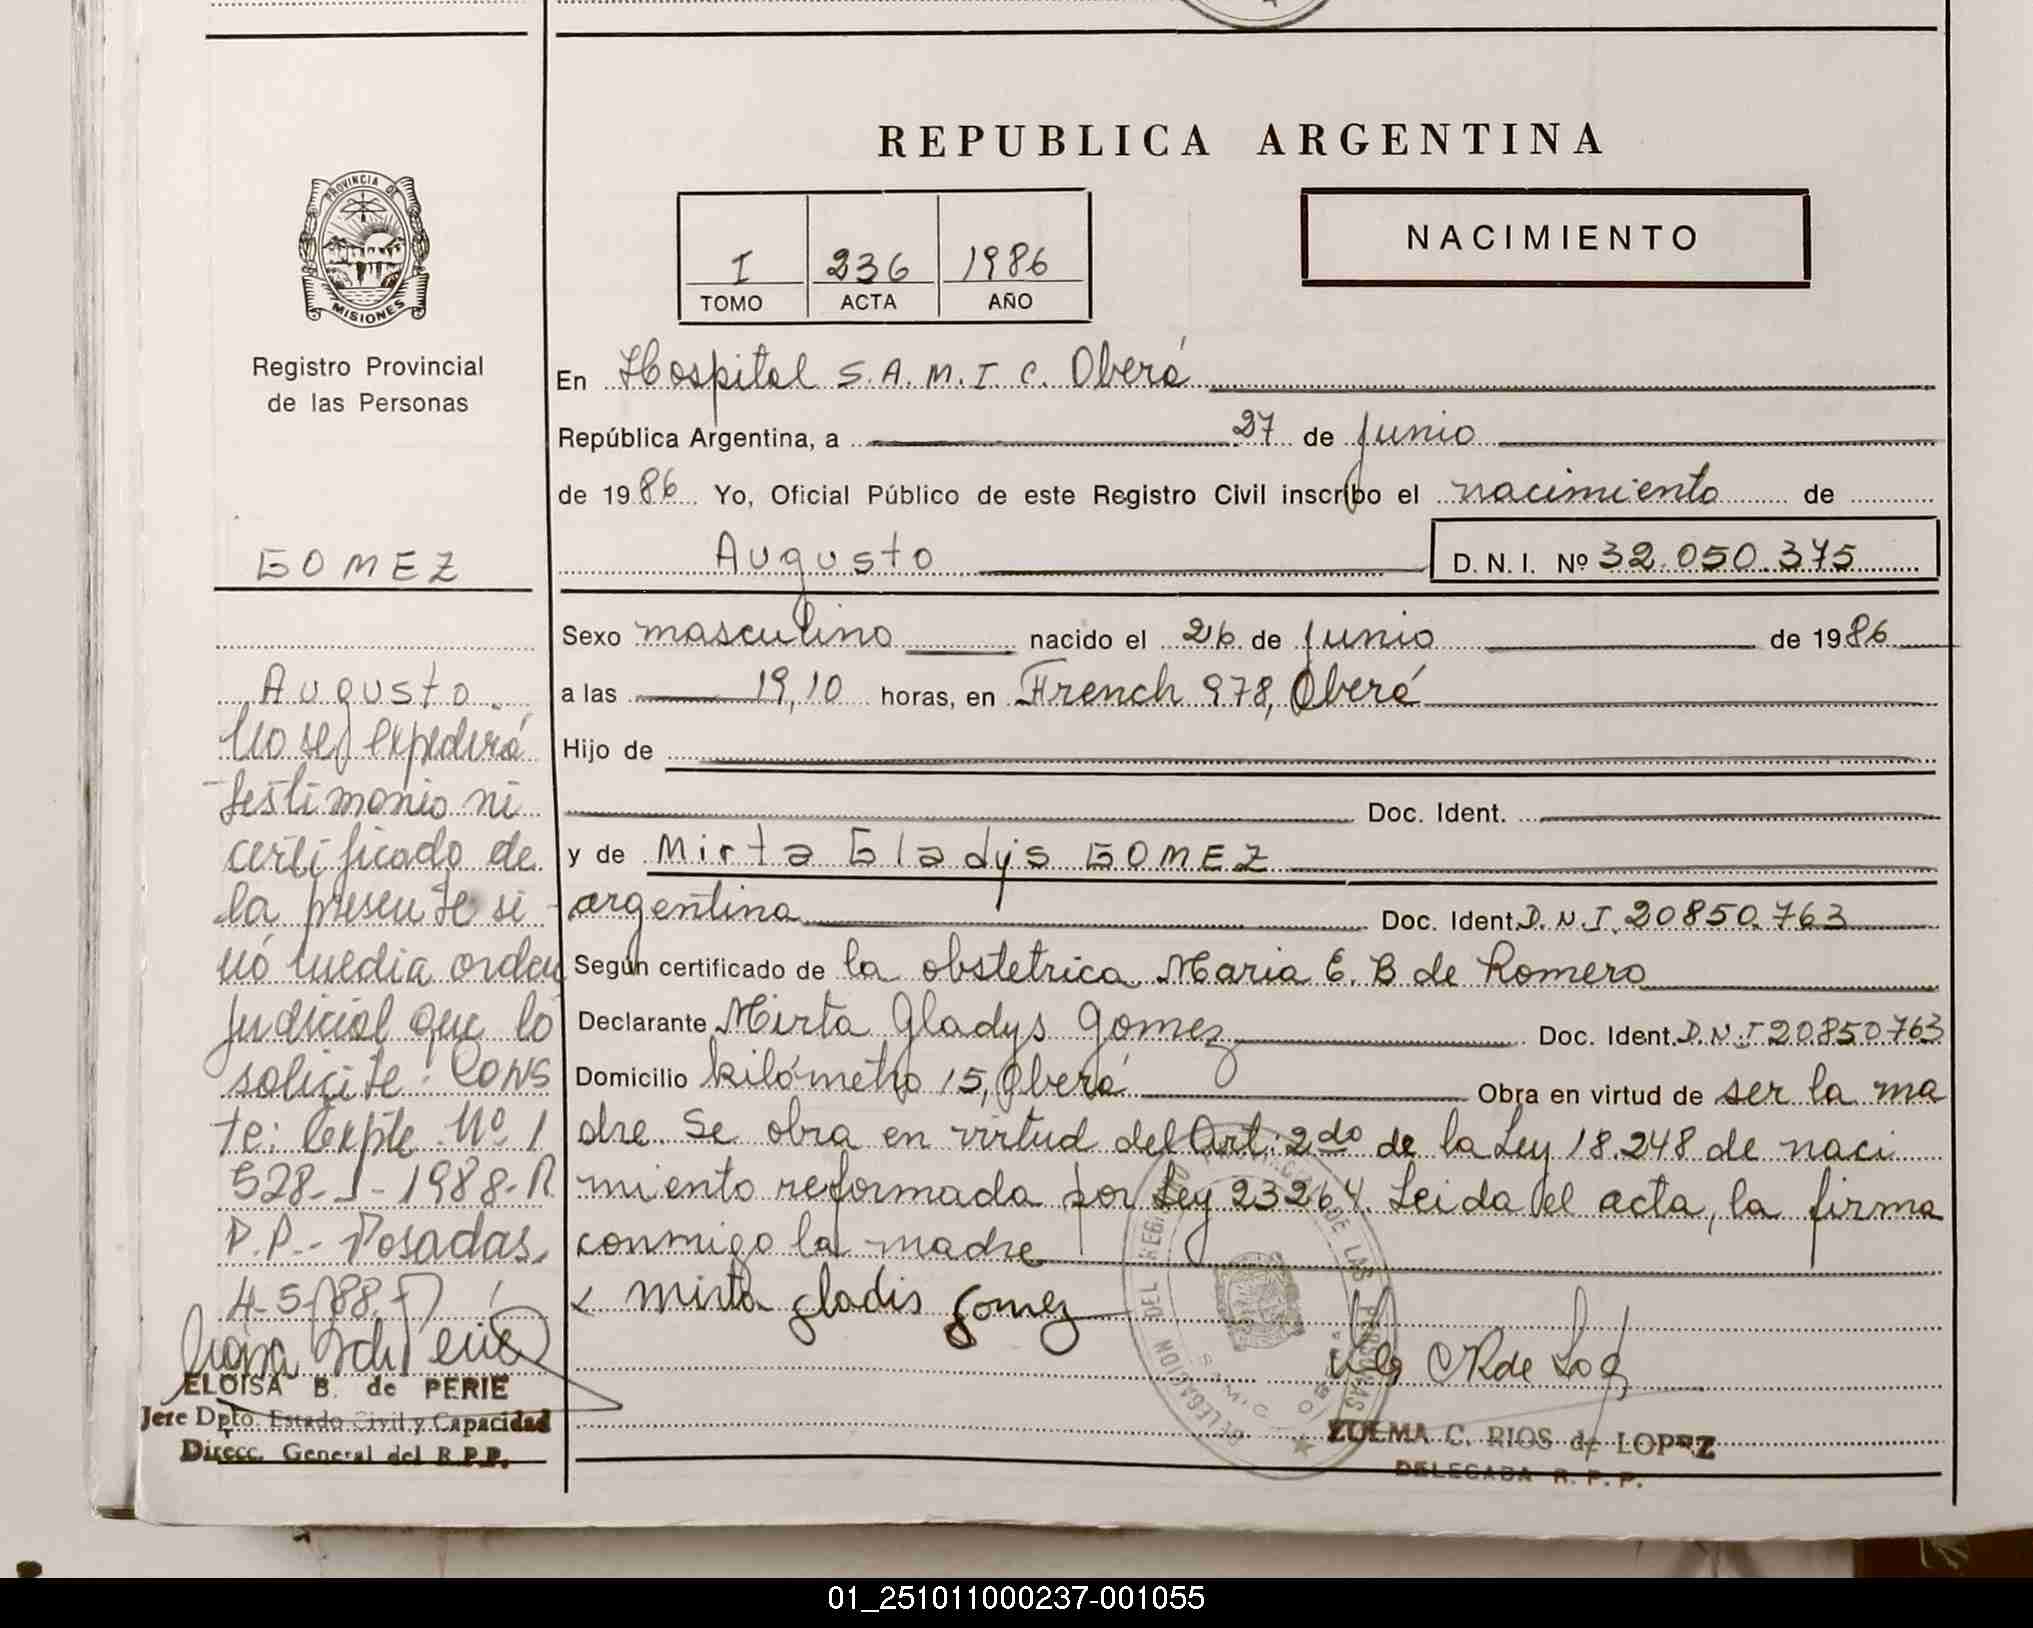 REPUBLICA ARGENTINA
PROVINCIA DE
MISIONES
Registro Provincial
de las Personas
I 236 1986
TOMO ACTA AÑO
NACIMIENTO
En Hospital S.A.M.I.C. Oberá
República Argentina, a 27 de junio
de 1986 Yo, Oficial Público de este Registro Civil inscribo el nacimiento de
Augusto D. N. I. Nº 32.050.375
Sexo masculino nacido el 26 de junio de 1986
a las 19,10 horas, en French 978, Oberá
Hijo de
Doc. Ident.
y de Mirta Gladys GOMEZ
argentina Doc. Ident. D.N.I. 20850.763
Según certificado de la obstetrica Maria E. B de Romero
Declarante Mirta Gladys Gomez Doc. Ident. D.N.I 20.850.763
Domicilio kilómetro 15, Oberá Obra en virtud de ser la ma
dre. Se obra en virtud del Art: 2do de la Ley 18.248 de naci
miento reformada por Ley 23264. Leida el acta, la firma
conmigo la madre
mirta gladis gomez
ZULMA C. RIOS de LOPEZ
DELEGADA R. P. P.
GOMEZ
Augusto
No se expedirá
testimonio ni
certificado de
la presente si
nó media orden
judicial que lo
solicite. CONS
te: Expte. Nº 1
528-J-1988-R.
P.P.- Posadas,
4-5-88.
ELOISA B. de PERIE
Jefe Dpto. Estado Civil y Capacidad
Direcc. General del R.P.P.
01_251011000237-001055